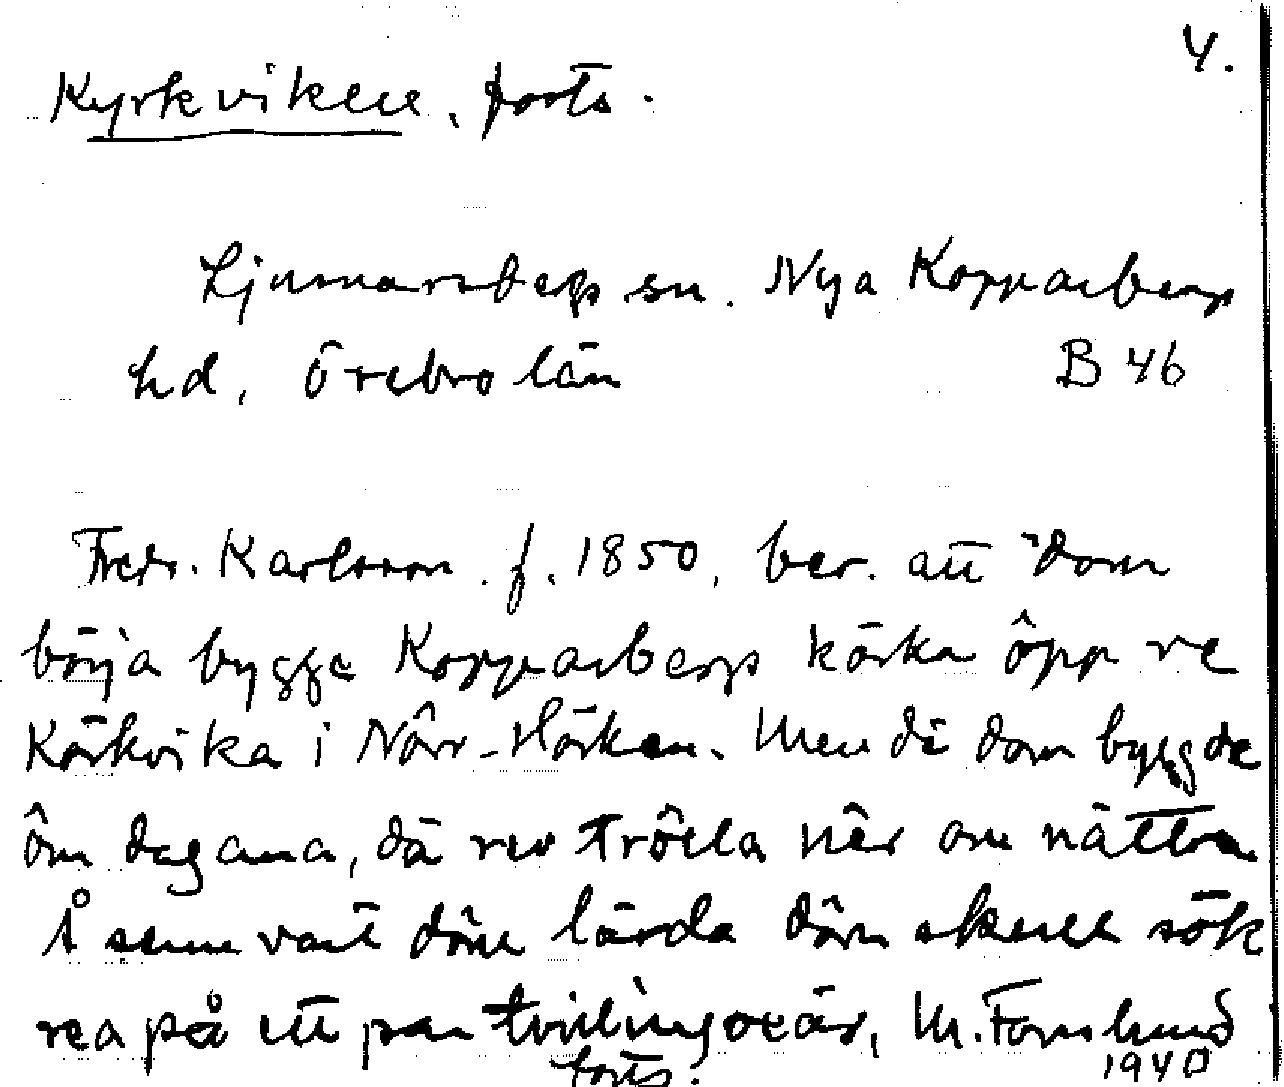 4.
Kyrkviken, forts.
Ljusnarsbergs sn. Nya Kopparbergs
hd, Örebro län B 46
Fredr. Karlsson. f. 1850, ber. att "dom
börja bygge Kopparbergs körka ôpp ve
Körkvika i Nôrr-Hörken. Men dä dom byggde
ôm dagana, dä rev trôlla nêr om nättra
Å sum vart dôm lärda dôm skulle sök
rea på ett par tvillingoxär, M. Fornlund
forts. 1940